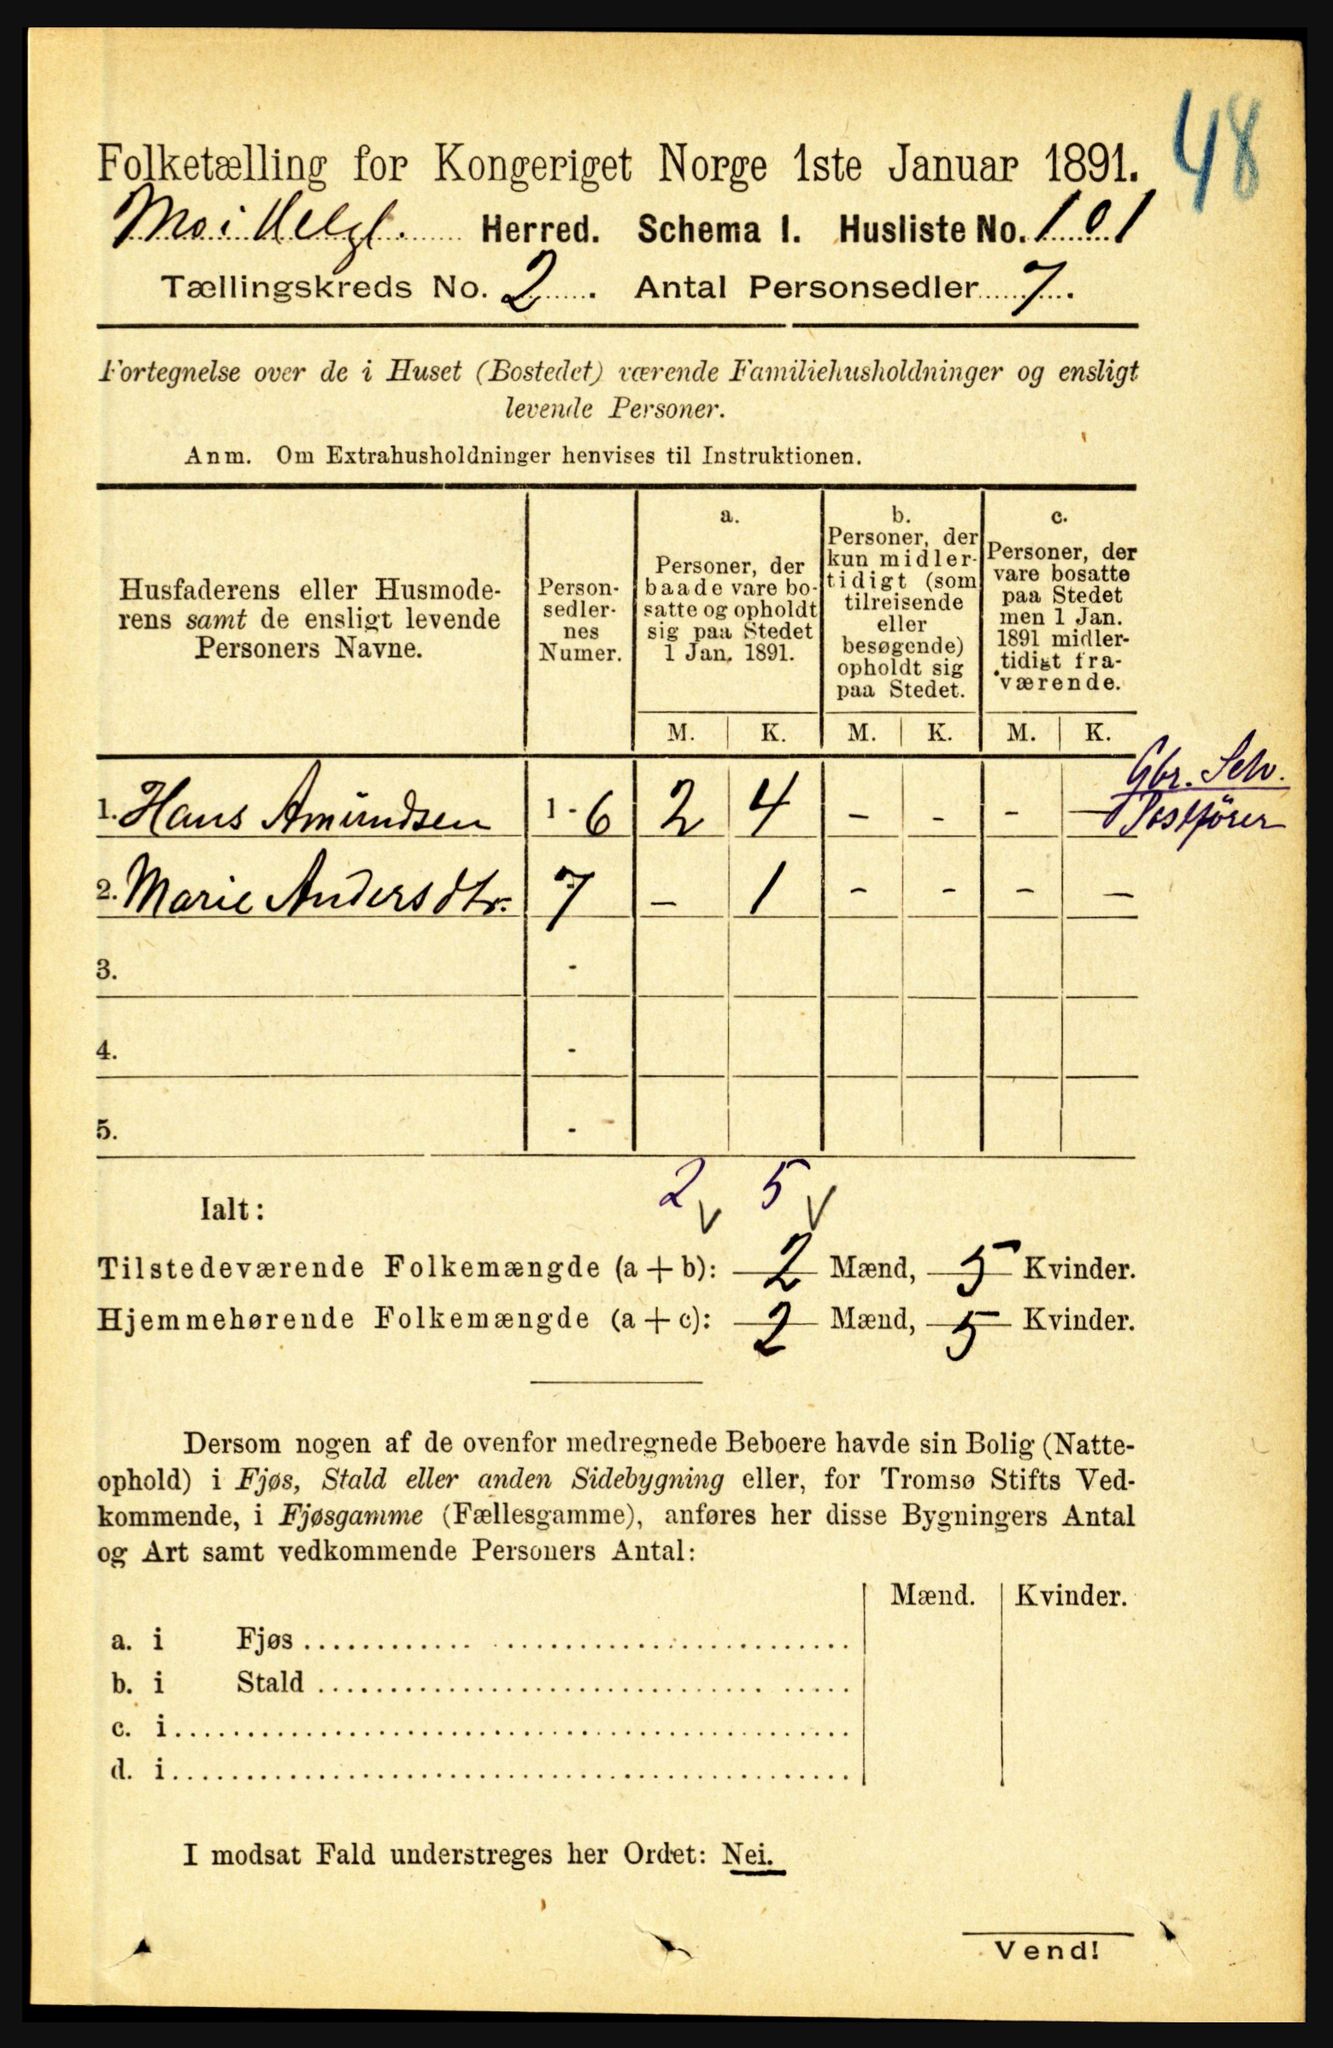 48
Folketælling for Kongeriget Norge 1ste Januar 1891.
Mo i Helgl. Herred. Schema I. Husliste No. 101
Tællingskreds No. 2. Antal Personsedler 7.
Fortegnelse over de i Huset (Bostedet) værende Familiehusholdninger og ensligt
levende Personer.
Anm. Om Extrahusholdninger henvises til Instruktionen.
Husfaderens eller Husmode-
rens samt de ensligt levende
Personers Navne.
Person-
sedler-
nes
Numer.
a.
Personer, der
baade vare bo-
satte og opholdt
sig paa Stedet
1 Jan. 1891.
b.
Personer, der
kun midler-
tidigt (som
tilreisende
eller
besøgende)
opholdt sig
paa Stedet.
c.
Personer, der
vare bosatte
paa Stedet
men 1 Jan.
1891 midler-
tidigt fra-
værende.
M. K. M. K. M. K.
Gbr. Selv.
1. Hans Amundsen 1-6 2 4 - - - - Postfører
2. Marie Andersdtr. 7 - 1 - - - -
3. -
4. -
5. -
2 v 5 v
Ialt:
Tilstedeværende Folkemængde (a+b): 2 Mænd, 5 Kvinder.
Hjemmehørende Folkemængde (a+c): 2 Mænd, 5 Kvinder.
Dersom nogen af de ovenfor medregnede Beboere havde sin Bolig (Natte-
ophold) i Fjøs, Stald eller anden Sidebygning eller, for Tromsø Stifts Ved-
kommende, i Fjøsgamme (Fællesgamme), anføres her disse Bygningers Antal
og Art samt vedkommende Personers Antal:
Mænd. Kvinder.
a. i Fjøs
b. i Stald
c. i
d. i
I modsat Fald understreges her Ordet: Nei.
Vend!